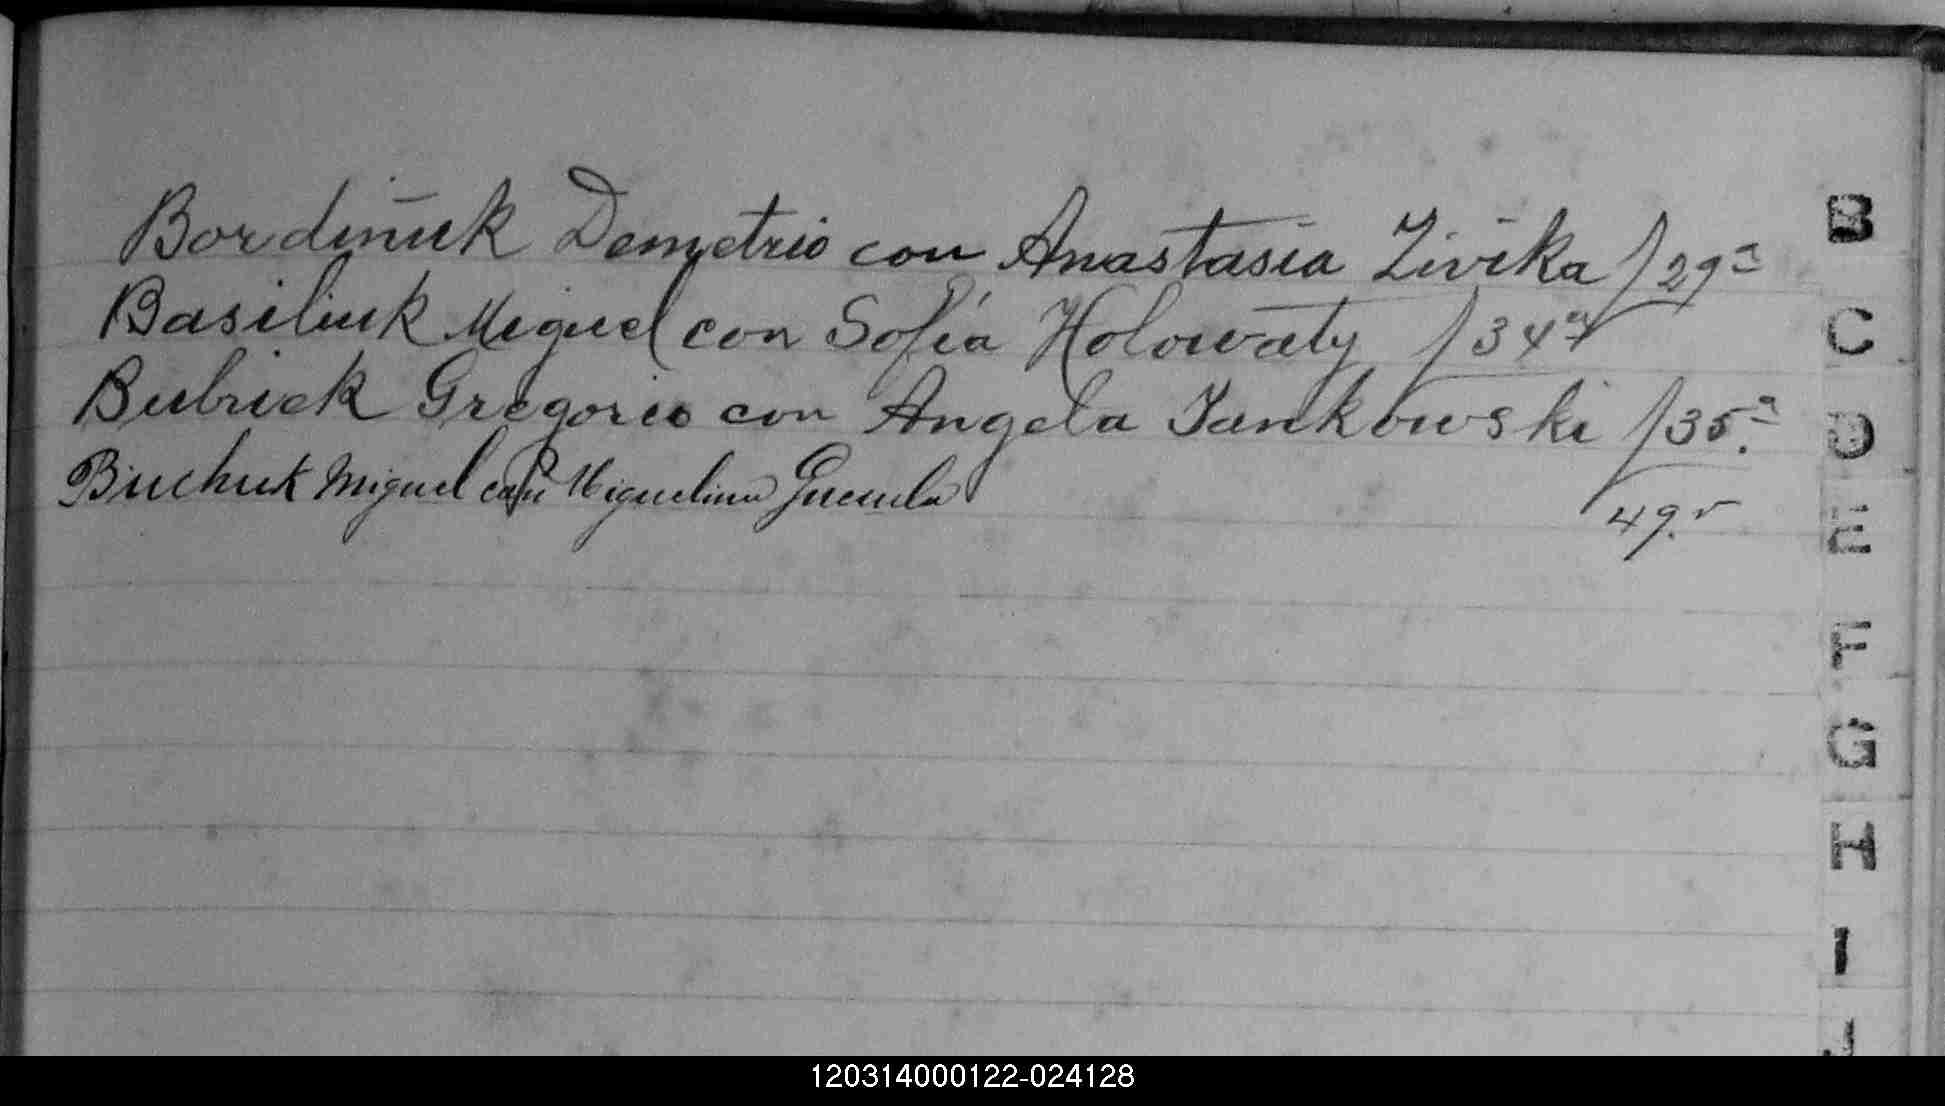 Bordiñuk Demetrio con Anastasia Zivika /29ª
Basiliuk Miguel con Sofía Holowaty /34ª
Bubriek Gregorio con Angela Jankowski /35.ª
Biuchuk Miguel con Miguelina 49.
B
C
D
E
F
G
H
I
J
120314000122-024128